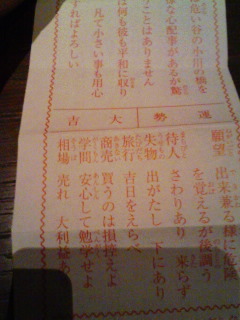 危い谷の小川の橋を
様な心配事があるが驚
ことはありません
は何も彼も平和に収り
凡て小さい事も用心
すればよろしい
運勢 大吉
願望 出来兼る様に危険
を覚えるが後調う
待人 さわりあり 来らず
失物 出がたし 下にあり
旅行 吉日をえらべ
商売 買うのは損控えよ
学問 安心して勉学せよ
相場 売れ 大利益あ